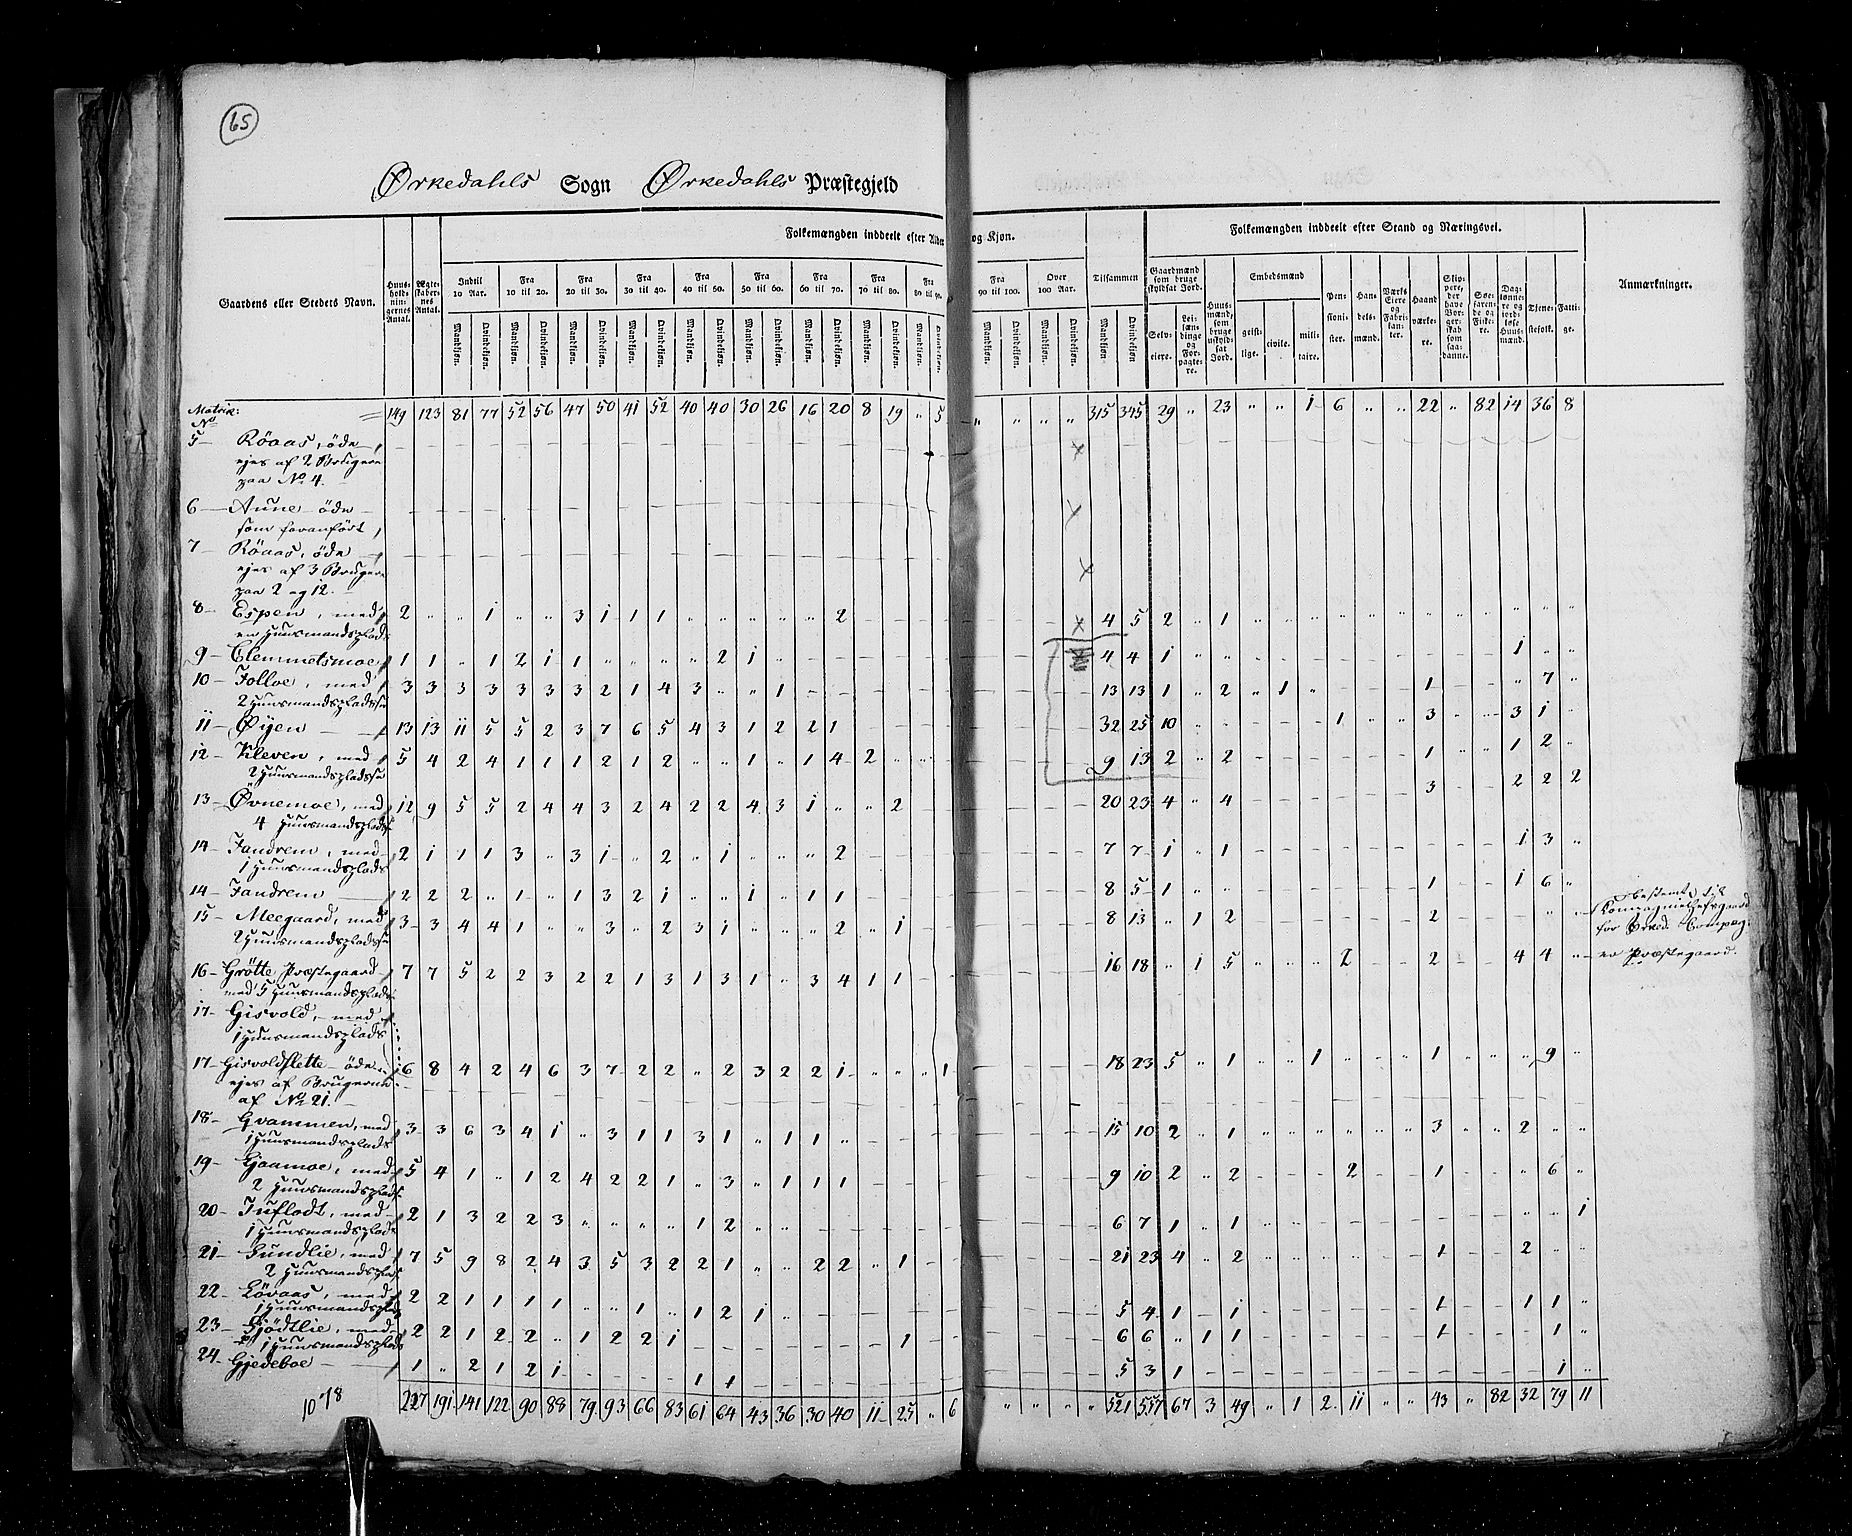 65
Ørkedahls Sogn Ørkedahls Præstegjeld
Gaardens eller Stedets Navn.
Huus-holdningernes Antal.
Ægteskabernes Antal.
Folkemængden inddeelt efter Alder og Kjøn.
Indtil 10 Aar. Fra 10 til 20. Fra 20 til 30. Fra 30 til 40. Fra 40 til 50. Fra 50 til 60. Fra 60 til 70. Fra 70 til 80. Fra 80 til 90. Fra 90 til 100. Over 100 Aar.
Mandkjøn. Qvindekjøn.
Tilsammen
Folkemængden inddeelt efter Stand og Næringsvei.
Gaardmænd som bruge skyldsat Jord.
Selv-eiere.
Leilændinge og Forpagtere.
Huusmænd, som bruge uskyldsat Jord.
Embedsmænd
geistlige. civile. militaire.
Pensionister.
Handelsmænd.
Værks Eiere og Fabrikanter.
Haandværkere.
Skippere, der have Borgerskab som saadanne.
Søefarende og Fiskere.
Daglønnere og jordløse Huusmænd.
Tjenestefolk.
Fattige.
Anmærkninger.
Matrik: No = 149 123 81 77 52 56 47 50 41 52 40 40 30 26 16 20 8 19 " 5 " " " " 315 345 29 " 23 " " 1 6 " " 22 " 82 14 36 8
5 — Röaas, öde
ejes af 2 Brugere
paa No 4.
6 — Aune — öde
som foranfört,
7 — Röaas, öde
ejes af 3 Brugere
paa 2 og 12.
8 — Espen, med 2 " " 1 " " 3 1 1 1 " " " " " 2 4 5 2 " 1
en Huusmandsplads
9 — Clemmetsmoe 1 1 " 1 2 1 1 " " " " 2 1 4 4 1 1
10 — Folloe, med 3 3 3 3 3 3 3 2 1 4 3 " " 1 13 13 1 " 2 " 1 " 1 " 7
2 Huusmandspladse
11 — Øyen 13 13 11 5 5 2 3 7 6 5 4 3 1 2 2 1 32 25 10 1 3 3 1
12 — Kleven, med 5 4 2 4 1 1 1 2 1 2 " " 1 " 1 4 2 9 13 2 " 2 1 1 2
2 Huusmandspladse
13 — Øvnemoe, med 12 9 5 5 2 4 4 3 2 4 2 2 4 3 1 " " 2 20 23 4 " 4 3 2 2 2
4 Huusmandspladse
14 — Fandrem, med 2 1 1 1 3 " 3 1 " 2 " 1 " " " 2 7 7 1 " 1 1 3
1 Huusmandsplads
14 — Fandrem 2 2 2 " 1 " 1 3 2 1 " " 1 " 1 1 8 5 1 1 1 6
15 — Meegaard, med 3 3 4 4 1 " " 3 " 2 3 1 " " " 2 " 1 8 13 " 1 2 2
2 Huusmandspladse
bestemt til
Compagniechefsgaard
for Örked. Compag.
16 — Grötte Præstegaard 7 7 5 2 2 3 2 2 1 3 1 3 1 " 3 4 1 1 16 18 " 1 5 2 2 4 4 er Præstegaard.
med 5 Huusmandspladse
17 — Gisvold, med
1 Huusmandsplads
17 — Gisvoldslette öde 16 8 4 2 4 6 3 7 2 2 " 2 3 2 2 1 " " " 1 18 23 5 " 1 1 1 9
ejes af Brugerne
af No 21.
18 — Gvammen, med 3 3 6 3 4 1 " 3 1 1 3 1 " 1 1 15 10 2 " 1 3 2
1 Huusmandsplads
19 — Gjaamoe, med 5 4 1 " 1 2 4 2 2 1 " 3 " 1 1 1 9 10 2 " 2 2 1 6
2 Huusmandspladse
20 — Tuflodt, med 2 1 3 2 2 3 " " " " 1 2 6 7 1 " 1 1
1 Huusmandsplads
21 — Sundlie, med 7 5 9 8 2 4 3 5 3 2 2 1 " " 2 2 " 1 21 23 4 " 2 1 2
2 Huusmandspladse
22 — Lövaas, med 2 2 1 1 1 1 " " 1 " 1 2 1 5 4 1 1 1 1 1
1 Huusmandsplads
23 — Sjödtlie, med 2 2 1 2 2 " 1 2 2 1 1 6 6 " 1 1 1 1
1 Huusmandsplads
24 — Gjedeboe 1 " 2 1 2 1 1 1 5 3 1 1
1078 227 191 141 122 90 88 79 93 66 83 61 64 43 36 30 40 11 25 " 6 " " " " 521 557 67 3 49 " 1 2 11 " " 43 " 82 32 79 11